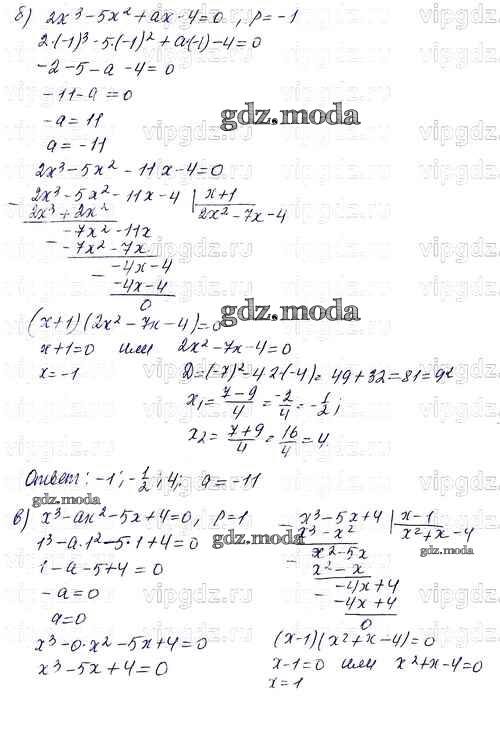 б) 2x³-5x²+ax-4=0, p=-1
2·(-1)³-5·(-1)²+a(-1)-4=0
-2-5-a-4=0
-11-a=0
-a=11
a=-11
2x³-5x²-11x-4=0
2x³-5x²-11x-4 | x+1
2x³+2x² 2x²-7x-4
-7x²-11x
-7x²-7x
-4x-4
-4x-4
0
(x+1)(2x²-7x-4)=0
x+1=0 или 2x²-7x-4=0
x=-1 D=(-7)²-4·2·(-4)=49+32=81=9²
x₁=(7-9)/4=-2/4=-1/2;
x₂=(7+9)/4=16/4=4
Ответ: -1; -1/2; 4; a=-11
в) x³-ax²-5x+4=0, p=1
1³-a·1²-5·1+4=0
1-a-5+4=0
-a=0
a=0
x³-0·x²-5x+4=0
x³-5x+4=0
x³-5x+4 | x-1
x³-x² x²+x-4
x²-5x
x²-x
-4x+4
-4x+4
0
(x-1)(x²+x-4)=0
x-1=0 или x²+x-4=0
x=1
gdz.moda
gdz.moda
gdz.moda
gdz.moda
vipgdz.ru